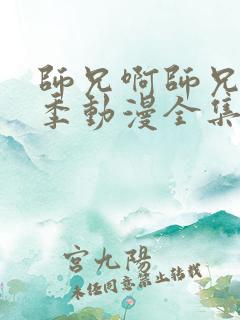 師兄啊師兄
季動漫全集
宮九陽
未經同意禁止轉載